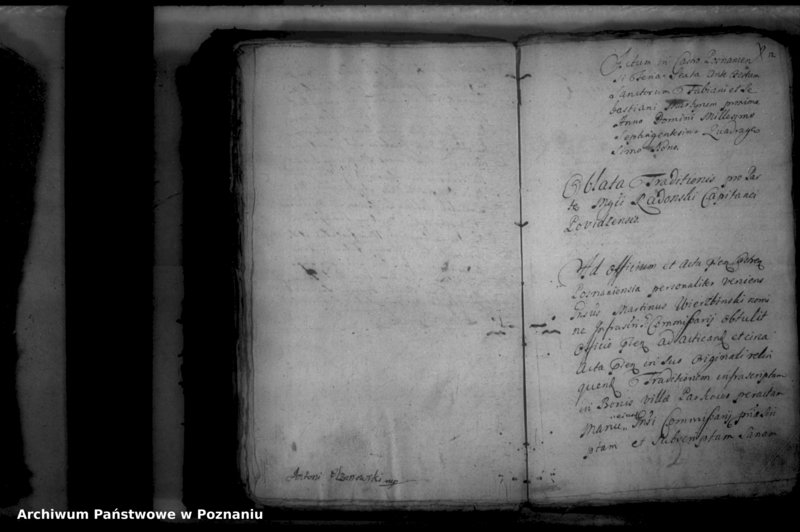 Antoni
12
Actum in Castro Posnanien
Feria Sexta Ante Festum
Sanctorum Fabiani et Se
bastiani Martyrum proxima
Anno Domini Millesimo
Septingentesimo Quadrage
simo Nono
Oblata Traditionis pro Par
te Mgci Radonski Capitanei
Ad Officium et Acta
Posnaniensia personaliter veniens
Martinus Wierzbinski nomi
ne Infrascri Commissarij obtulit
Officio ad Acticand et circa
Acta in suo Originali relin
quend Traditionem infrascriptam
in Bonis villa peractam
Manu Commissarij
ptam et Subscriptam Sanam
Archiwum Państwowe w Poznaniu